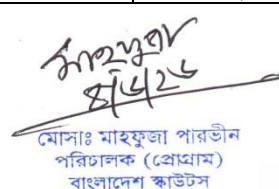 মাহফুজা
৪/৬/২৬
মোসাঃ মাহফুজা পারভীন
পরিচালক (প্রোগ্রাম)
বাংলাদেশ স্কাউটস